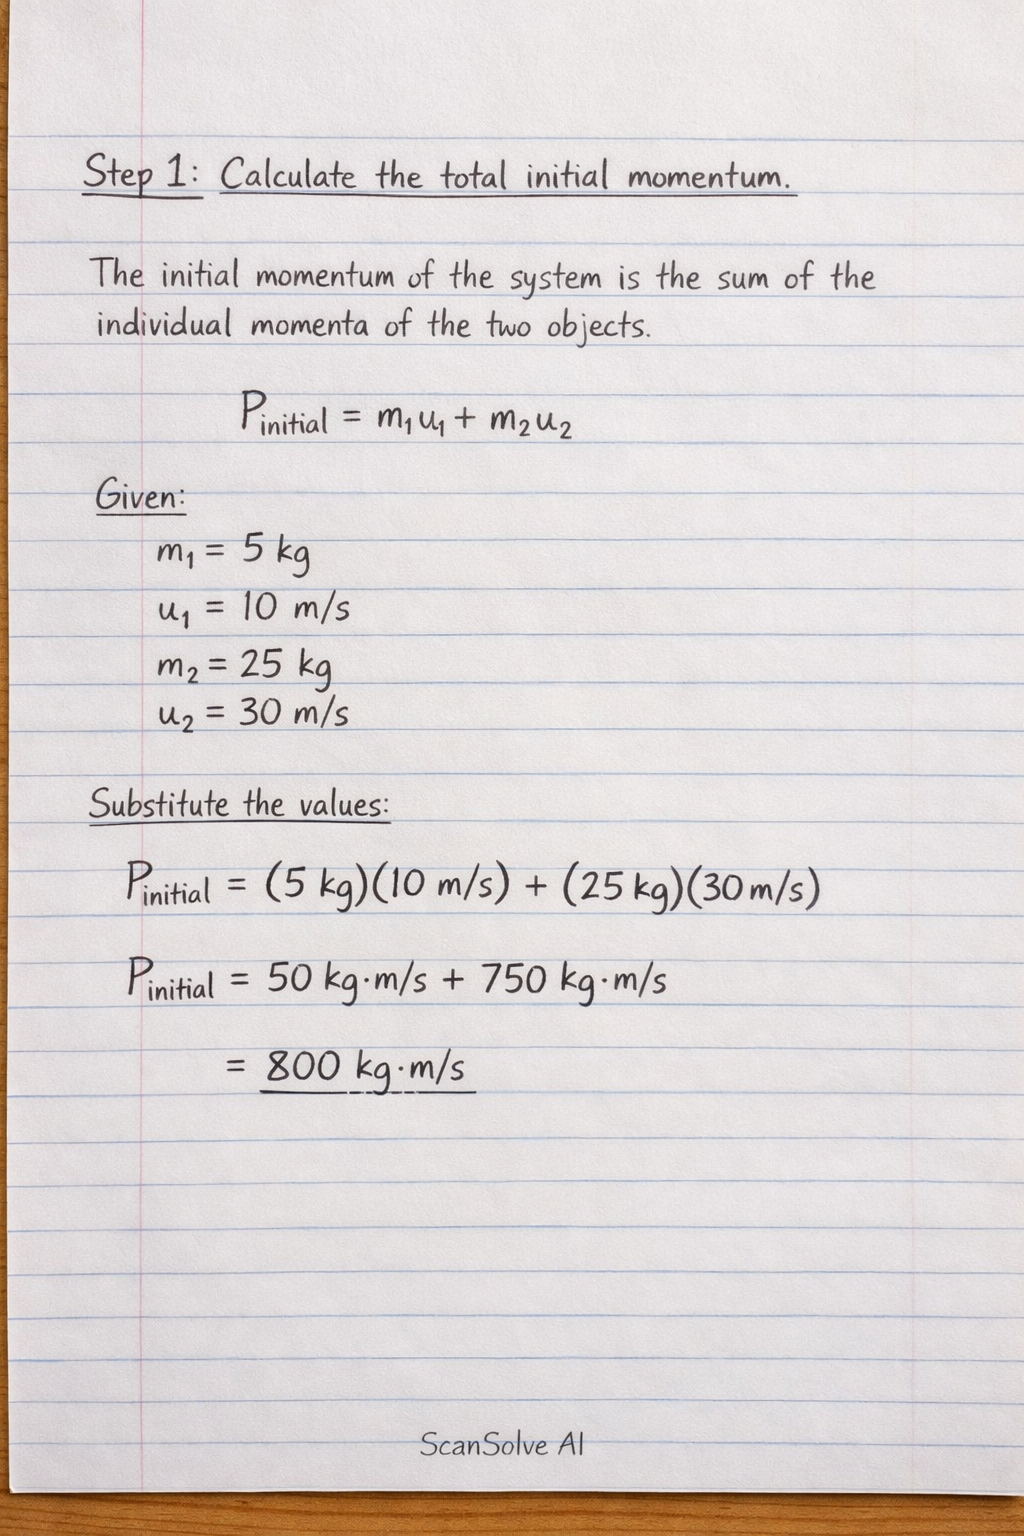 Step 1: Calculate the total initial momentum.
The initial momentum of the system is the sum of the
individual momenta of the two objects.
P_initial = m₁u₁ + m₂u₂
Given:
m₁ = 5 kg
u₁ = 10 m/s
m₂ = 25 kg
u₂ = 30 m/s
Substitute the values:
P_initial = (5 kg)(10 m/s) + (25 kg)(30 m/s)
P_initial = 50 kg·m/s + 750 kg·m/s
= 800 kg·m/s
ScanSolve AI